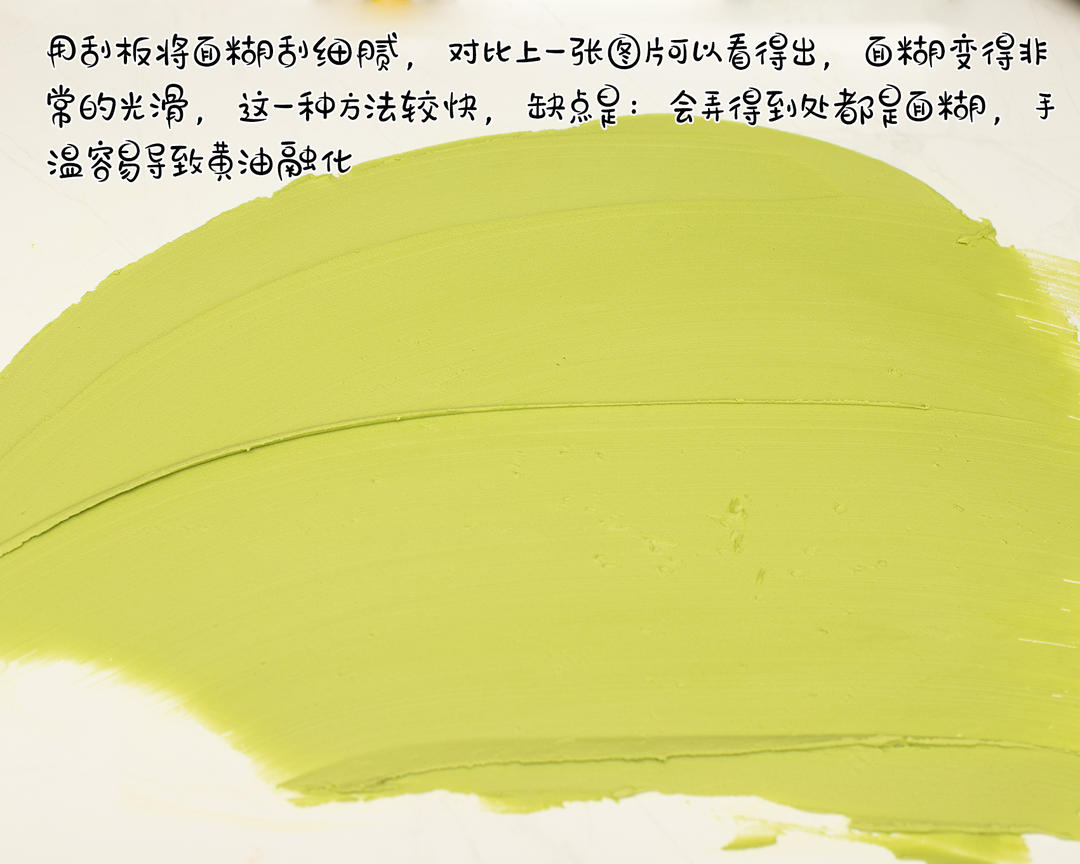 用刮板将面糊刮细腻，对比上一张图片可以看得出，面糊变得非
常的光滑，这一种方法较快，缺点是：会弄得到处都是面糊，手
温容易导致黄油融化